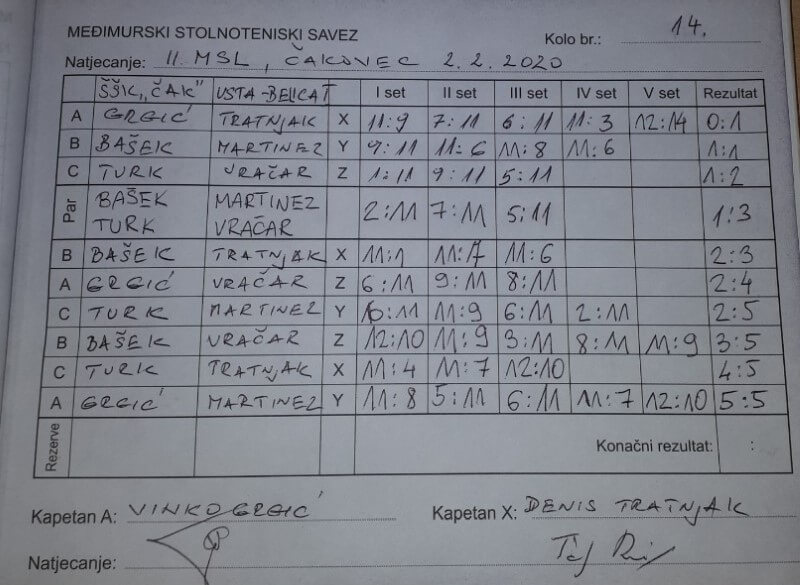 MEĐIMURSKI STOLNOTENISKI SAVEZ
Kolo br.: 14.
Natjecanje: II. MSL, ČAKOVEC 2.2.2020
ŠŠK „ČAK" USTA-BELICA I set II set III set IV set V set Rezultat
A GRGIĆ TRATNJAK X 11:9 7:11 6:11 11:3 12:14 0:1
B BAŠEK MARTINEZ Y 9:11 11:6 11:8 11:6 1:1
C TURK VRAČAR Z 1:11 9:11 5:11 1:2
Par BAŠEK MARTINEZ 2:11 7:11 5:11 1:3
TURK VRAČAR
B BAŠEK TRATNJAK X 11:1 11:7 11:6 2:3
A GRGIĆ VRAČAR Z 6:11 9:11 8:11 2:4
C TURK MARTINEZ Y 6:11 11:9 6:11 2:11 2:5
B BAŠEK VRAČAR Z 12:10 11:9 3:11 8:11 11:9 3:5
C TURK TRATNJAK X 11:4 11:7 12:10 4:5
A GRGIĆ MARTINEZ Y 11:8 5:11 6:11 11:7 12:10 5:5
Rezerve Konačni rezultat: :
Kapetan A: VINKO GRGIĆ Kapetan X: DENIS TRATNJAK
Natjecanje: